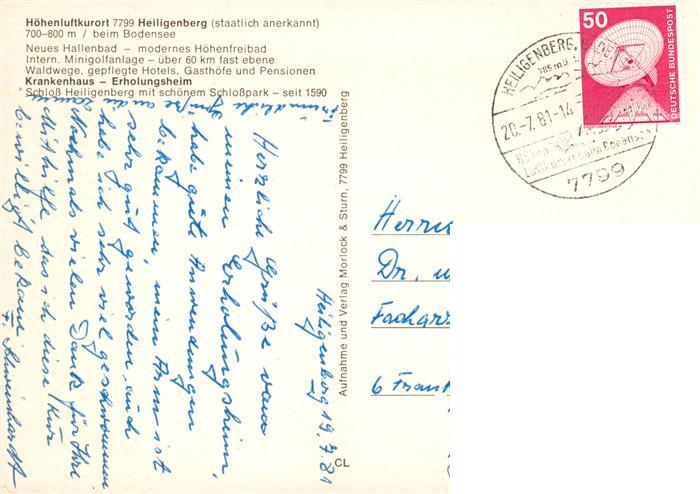 Höhenluftkurort 7799 Heiligenberg (staatlich anerkannt)
700–800 m / beim Bodensee
Neues Hallenbad – modernes Höhenfreibad
Intern. Minigolfanlage – über 60 km fast ebene
Waldwege, gepflegte Hotels, Gasthöfe und Pensionen
Krankenhaus – Erholungsheim
Schloß Heiligenberg mit schönem Schloßpark – seit 1590
50
DEUTSCHE BUNDESPOST
HEILIGENBERG, BADEN
20.-7.81-14
Luftkurort beim Bodensee
7799
Aufnahme und Verlag Morlock & Sturn, 7799 Heiligenberg
CL
Heiligenberg 19.7.81
Herzliche Grüße vom
meinen Erholungsheim,
habe gute Anwendungen
bekommen, mein Arm ist
sehr gut geworden, auch
habe ich sehr viel geschwommen
Nochmals vielen Dank für Ihre
Mithilfe das ich diese Kur
bewilligt bekam
F. Schweinhardt
Freundliche Grüße an die
Herrn
Dr. u
Fachar
6 Frank